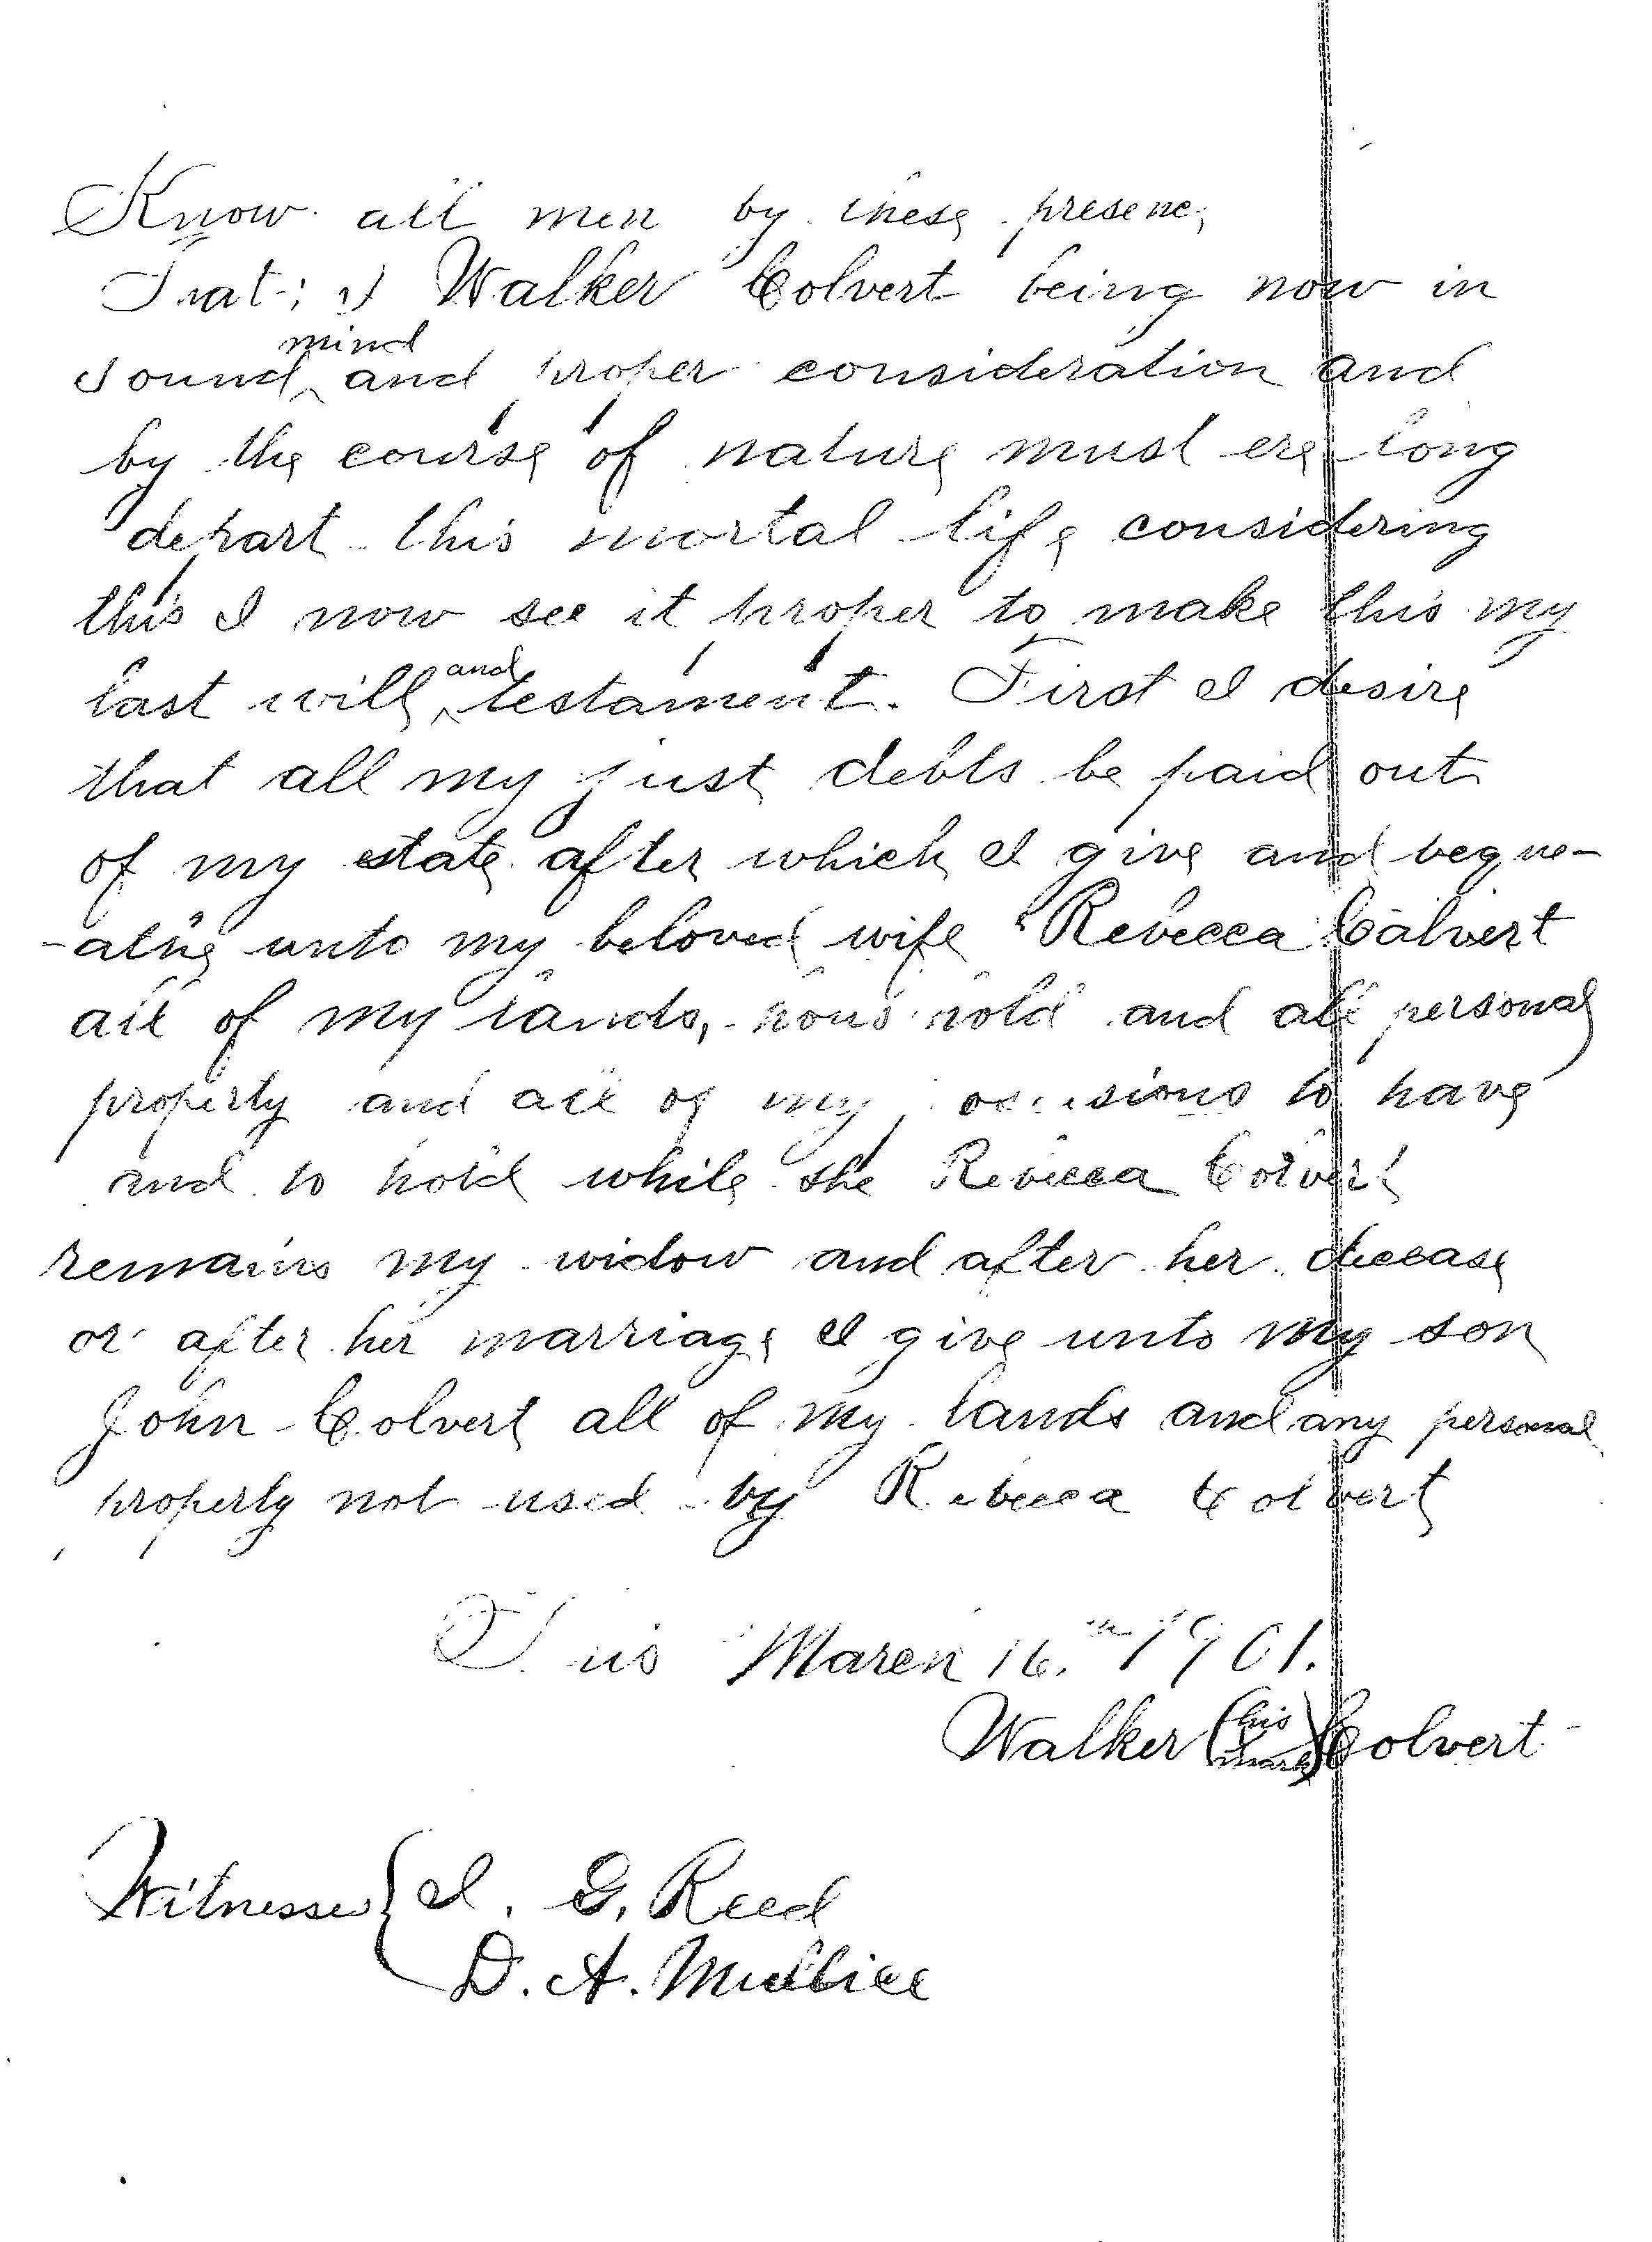 Know all men by these presenc,
That; I Walker Colvert being now in
mind
sound and proper consideration and
by the course of nature must ere long
depart this mortal life considering
this I now see it proper to make this my
and
last will testament. First I desire
that all my just debts be paid out
of my estate after which I give and beque-
-athe unto my beloved wife Rebecca Calvert
all of my lands, hous hold and all personal
property and all of my to have
and to hold while she Rebecca Colvert
remains my widow and after her decease
or after her marriage I give unto my son
John Colvert all of my lands and any personal
property not used by Rebecca Colvert
This March 16.th 1901.
Walker (his mark) Colvert
Witnesses { I. G. Reed
D. A.